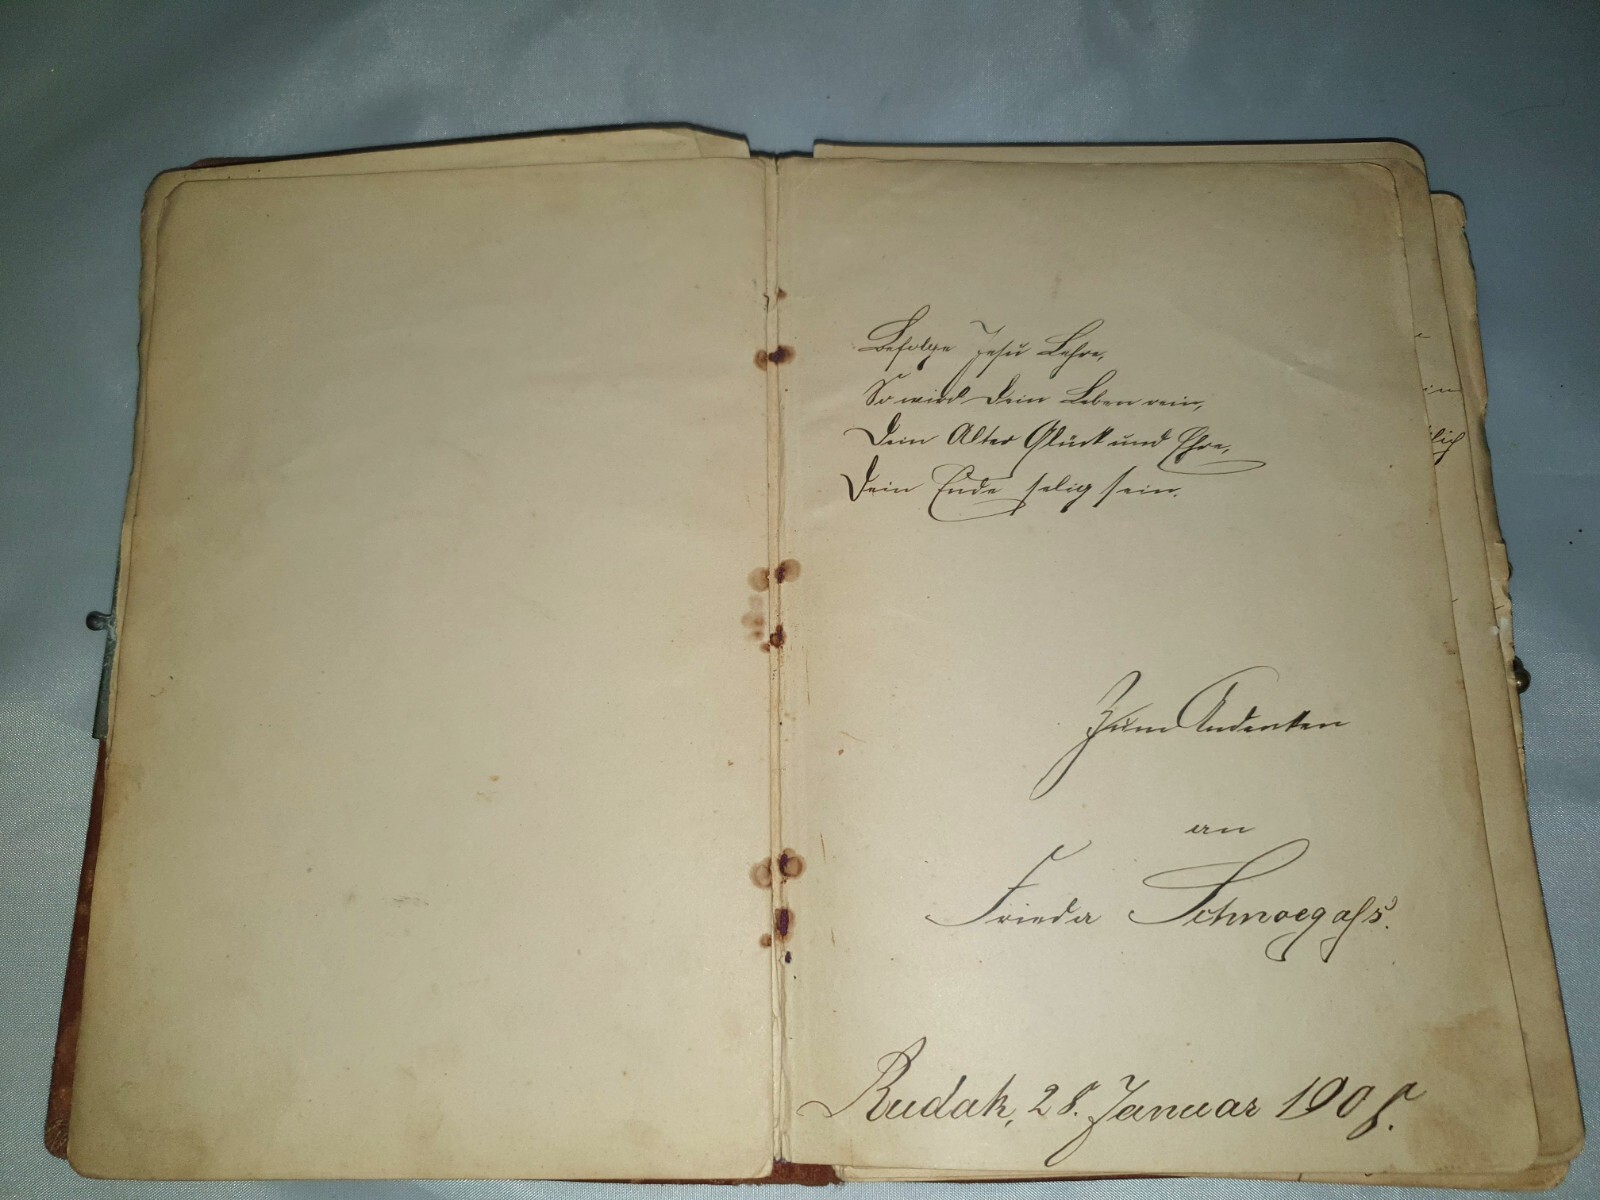 Befolge Jesu Lehre,
So wird Dein Leben rein,
Dein Alter Glück und Ehre,
Dein Ende selig sein.
Zum Andenken
an
Frieda Schnoegaſs.
Rudak, 28. Januar 1908.